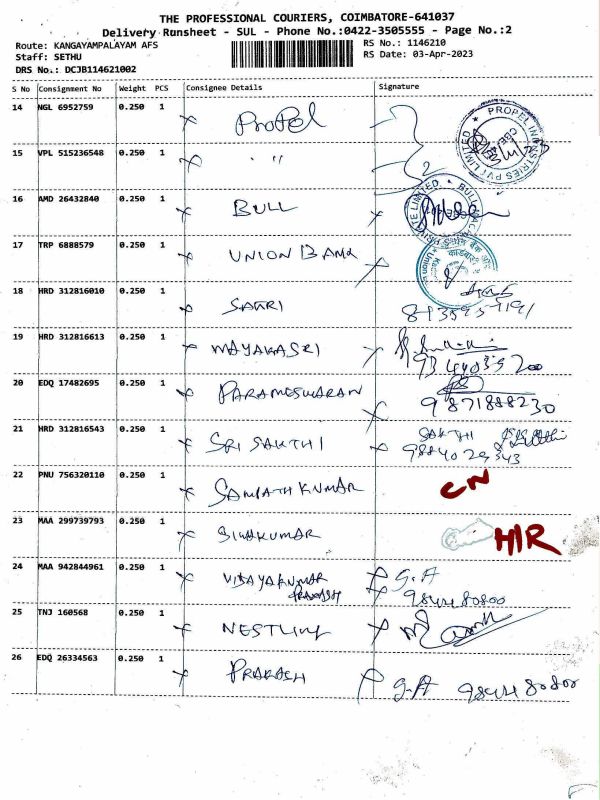 THE PROFESSIONAL COURIERS, COIMBATORE-641037
Delivery Runsheet - SUL - Phone No.:0422-3505555 - Page No.:2
Route: KANGAYAMPALAYAM AFS RS No.: 1146210
Staff: SETHU RS Date: 03-Apr-2023
DRS No.: DCJB114621002
S No Consignment No Weight PCS Consignee Details Signature
14 NGL 6952759 0.250 1 Propel
15 VPL 515236548 0.250 1 " "
16 AMD 26432840 0.250 1 BULL
17 TRP 6888579 0.250 1 UNION BANK
18 HRD 312816010 0.250 1
19 HRD 312816613 0.250 1 MAYAKASRI
20 EDQ 17482695 0.250 1 PARAMESWARAN 9871888230
21 HRD 312816543 0.250 1 SRI SAKTHI SAKTHI
22 PNU 756320110 0.250 1 SAMPATH KUMAR CN
23 MAA 299739793 0.250 1 SIVAKUMAR
24 MAA 942844961 0.250 1 VIJAYAKUMAR
PRAKASH
25 TNJ 160568 0.250 1
26 EDQ 26334563 0.250 1 PRAKASH